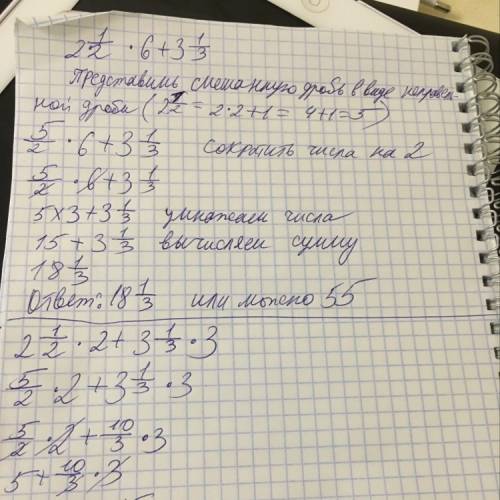 2 1/2 · 6 + 3 1/3
Представить смешанную дробь в виде неправиль-
ной дроби (2 1/2 = 2·2+1 = 4+1=5)
5/2 · 6 + 3 1/3 сократить числа на 2
5/2 · 6 + 3 1/3
5 × 3 + 3 1/3 умножаем числа
15 + 3 1/3 вычисляем сумму
18 1/3
Ответ: 18 1/3 или можно 55
2 1/2 · 2 + 3 1/3 · 3
5/2 · 2 + 3 1/3 · 3
5/2 · 2 + 10/3 · 3
5 + 10/3 · 3